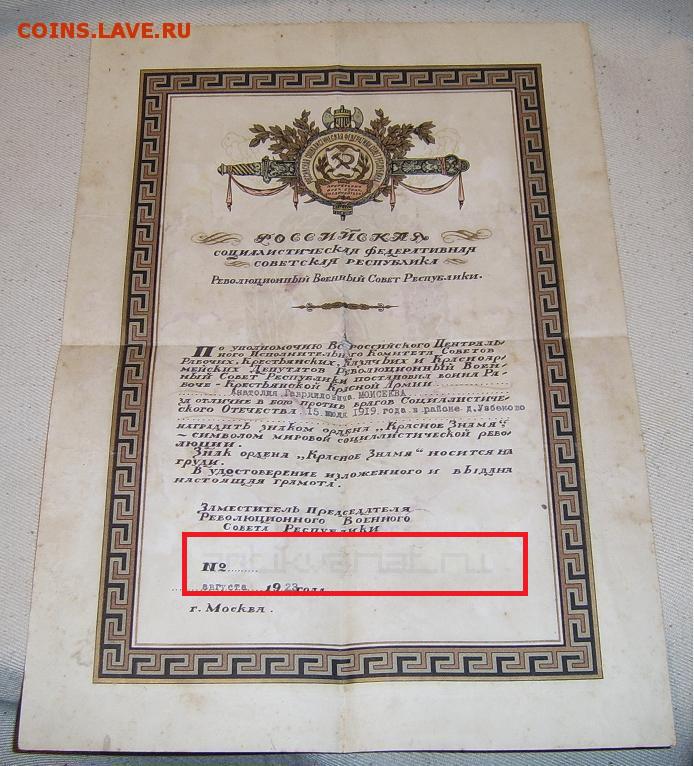 COINS.LAVE.RU
РОССИЙСКАЯ
СОЦИАЛИСТИЧЕСКАЯ ФЕДЕРАТИВНАЯ
СОВЕТСКАЯ РЕСПУБЛИКА
РЕВОЛЮЦИОННЫЙ ВОЕННЫЙ СОВЕТ РЕСПУБЛИКИ.
ПО УПОЛНОМОЧИЮ ВСЕРОССИЙСКОГО ЦЕНТРАЛЬ-
НОГО ИСПОЛНИТЕЛЬНОГО КОМИТЕТА СОВЕТОВ
РАБОЧИХ, КРЕСТЬЯНСКИХ, КАЗАЧЬИХ И КРАСНОАР-
МЕЙСКИХ ДЕПУТАТОВ РЕВОЛЮЦИОННЫЙ ВОЕН-
НЫЙ СОВЕТ РЕСПУБЛИКИ ПОСТАНОВИЛ ВОИНА РА-
БОЧЕ-КРЕСТЬЯНСКОЙ КРАСНОЙ АРМИИ
Анатолия МОИСЕЕВА
ЗА ОТЛИЧИЕ В БОЮ ПРОТИВ ВРАГОВ СОЦИАЛИСТИЧЕ-
СКОГО ОТЕЧЕСТВА 15 июля 1919 года в районе д.Узбеково
НАГРАДИТЬ ЗНАКОМ ОРДЕНА „КРАСНОЕ ЗНАМЯ“
— СИМВОЛОМ МИРОВОЙ СОЦИАЛИСТИЧЕСКОЙ РЕВО-
ЛЮЦИИ.
ЗНАК ОРДЕНА „КРАСНОЕ ЗНАМЯ“ НОСИТСЯ НА
ГРУДИ.
В УДОСТОВЕРЕНИЕ ИЗЛОЖЕННОГО И ВЫДАНА
НАСТОЯЩАЯ ГРАМОТА.
ЗАМЕСТИТЕЛЬ ПРЕДСЕДАТЕЛЯ
РЕВОЛЮЦИОННОГО ВОЕННОГО
СОВЕТА РЕСПУБЛИКИ
№
августа 1923 ГОДА
г. МОСКВА.